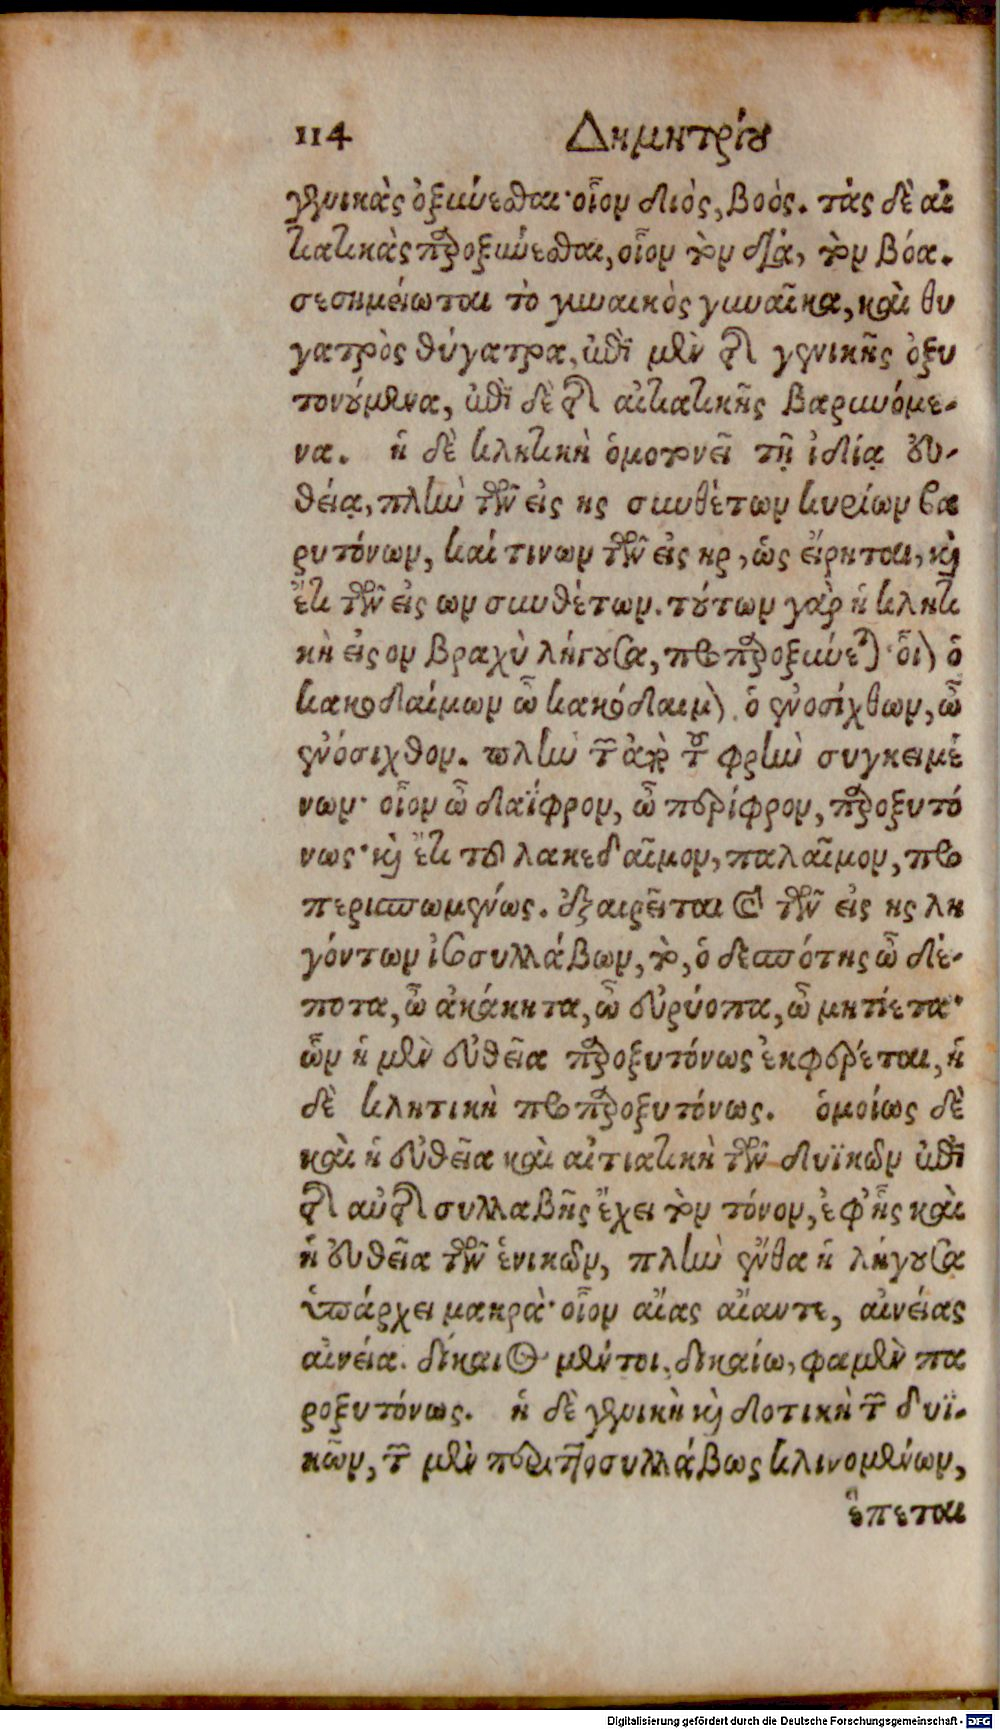 114 Δημητρίου
γενικὰς ὀξύνεσθαι· οἷον διὸς, βοὸς. τὰς δὲ αἰ
τιατικὰς προξύνεσθαι, οἷον τὸν δία, τὸν βόα.
σεσημείωται τὸ γυναικὸς γυναῖκα, καὶ θυ
γατρὸς θύγατρα, ἐπὶ μὲν τῆς γενικῆς ὀξυ
τονούμενα, ἐπὶ δὲ τῆς αἰτιατικῆς βαρυνόμε-
να. ἡ δὲ κλητικὴ ὁμοτονεῖ τῇ ἰδίᾳ εὐ-
θείᾳ, πλὴν τῶν εἰς ης συνθέτων κυρίων βα
ρυτόνων, καί τινων τῶν εἰς ηρ, ὡς εἴρηται, καὶ
ἔτι τῶν εἰς ων συνθέτων. τούτων γὰρ ἡ κλητι
κὴ εἰς ον βραχὺ λήγουσα, προπαροξύνεται· οἷον ὁ
κακοδαίμων ὦ κακόδαιμον, ὁ ἐνοσίχθων, ὦ
ἐνόσιχθον. πλὴν τῶν ἀπὸ τοῦ φρὴν συγκειμέ
νων· οἷον ὦ δαΐφρον, ὦ περίφρον, παροξυτό
νως· καὶ ἔτι τοῦ λακεδαῖμον, παλαῖμον, προ
περισπωμένως. ἐξαιρεῖται καὶ τῶν εἰς ης λη
γόντων ἰσοσυλλάβων, τὸ, ὁ δεσπότης ὦ δέ-
ποτα, ὦ ἀκάκητα, ὦ εὐρύοπα, ὦ μητίετα·
ὧν ἡ μὲν εὐθεῖα παροξυτόνως ἐκφέρεται, ἡ
δὲ κλητικὴ προπαροξυτόνως. ὁμοίως δὲ
καὶ ἡ εὐθεῖα καὶ αἰτιατικὴ τῶν δυϊκῶν ἐπὶ
τῆς αὐτῆς συλλαβῆς ἔχει τὸν τόνον, ἐφ᾽ ἧς καὶ
ἡ εὐθεῖα τῶν ἑνικῶν, πλὴν ἔνθα ἡ λήγουσα
ὑπάρχει μακρὰ· οἷον αἴας αἴαντε, αἰνείας
αἰνεία. δίκαιος μέντοι, δικαίω, φαμὲν πα
ροξυτόνως. ἡ δὲ γενικὴ καὶ δοτικὴ τῶν δυϊ-
κῶν, τῶν μὲν περιττοσυλλάβως κλινομένων,
ἕπεται
Digitalisierung gefördert durch die Deutsche Forschungsgemeinschaft - DFG